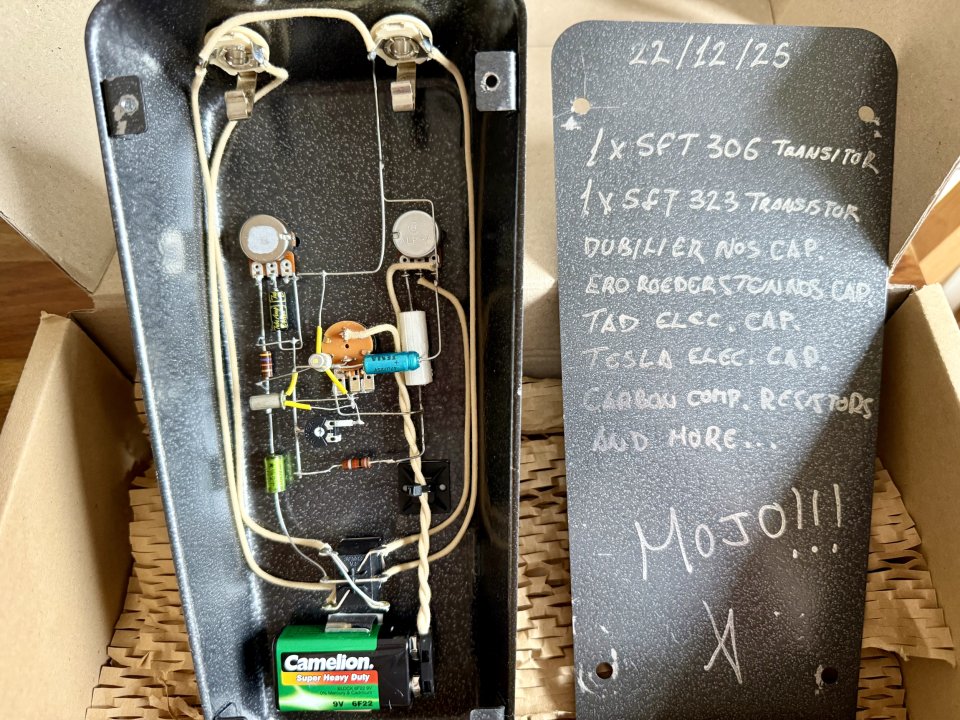 22/12/25
1x SFT 306 TRANSITOR
1x SFT 323 TRANSISTOR
DUBILIER NOS CAP.
ERO ROEDERSTON NOS CAP.
TAD ELEC. CAP.
TESLA ELEC. CAP
CARBON COMP. RESISTORS
AND MORE...
MOJO!!!
TESLA
Camelion.
Super Heavy Duty
BLOCK 6F22 9V
0% Mercury & Cadmium
9V 6F22